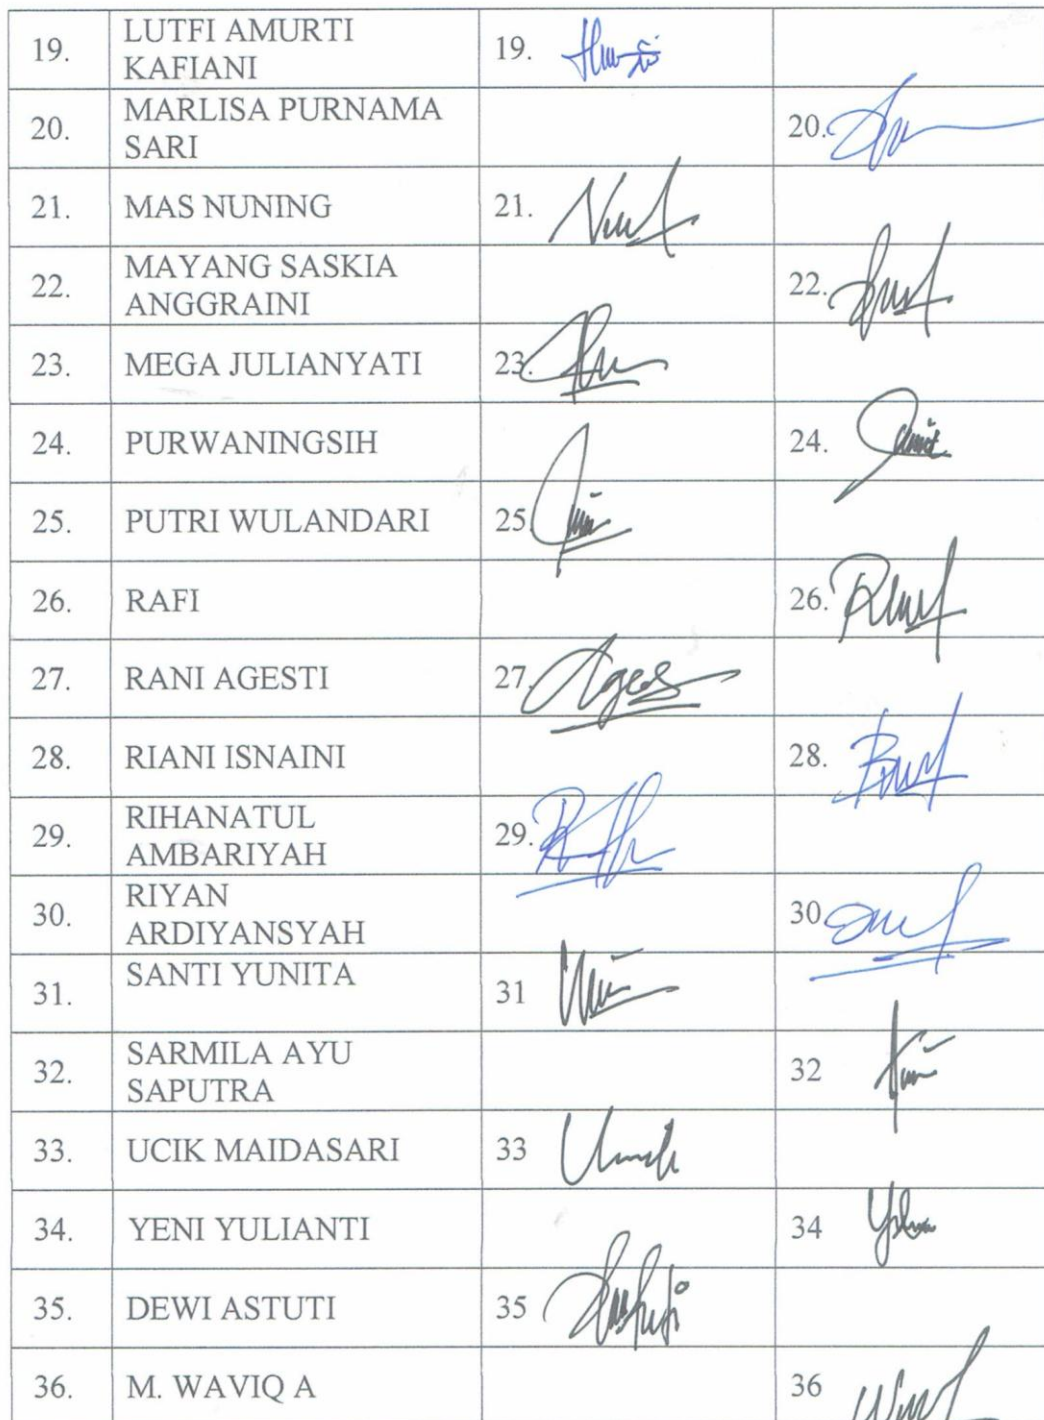 19. LUTFI AMURTI 19.
KAFIANI
20. MARLISA PURNAMA 20.
SARI
21. MAS NUNING 21.
22. MAYANG SASKIA 22.
ANGGRAINI
23. MEGA JULIANYATI 23.
24. PURWANINGSIH 24.
25. PUTRI WULANDARI 25
26. RAFI 26.
27. RANI AGESTI 27.
28. RIANI ISNAINI 28.
29. RIHANATUL 29.
AMBARIYAH
30. RIYAN 30
ARDIYANSYAH
31. SANTI YUNITA 31
32. SARMILA AYU 32
SAPUTRA
33. UCIK MAIDASARI 33
34. YENI YULIANTI 34
35. DEWI ASTUTI 35
36. M. WAVIQ A 36